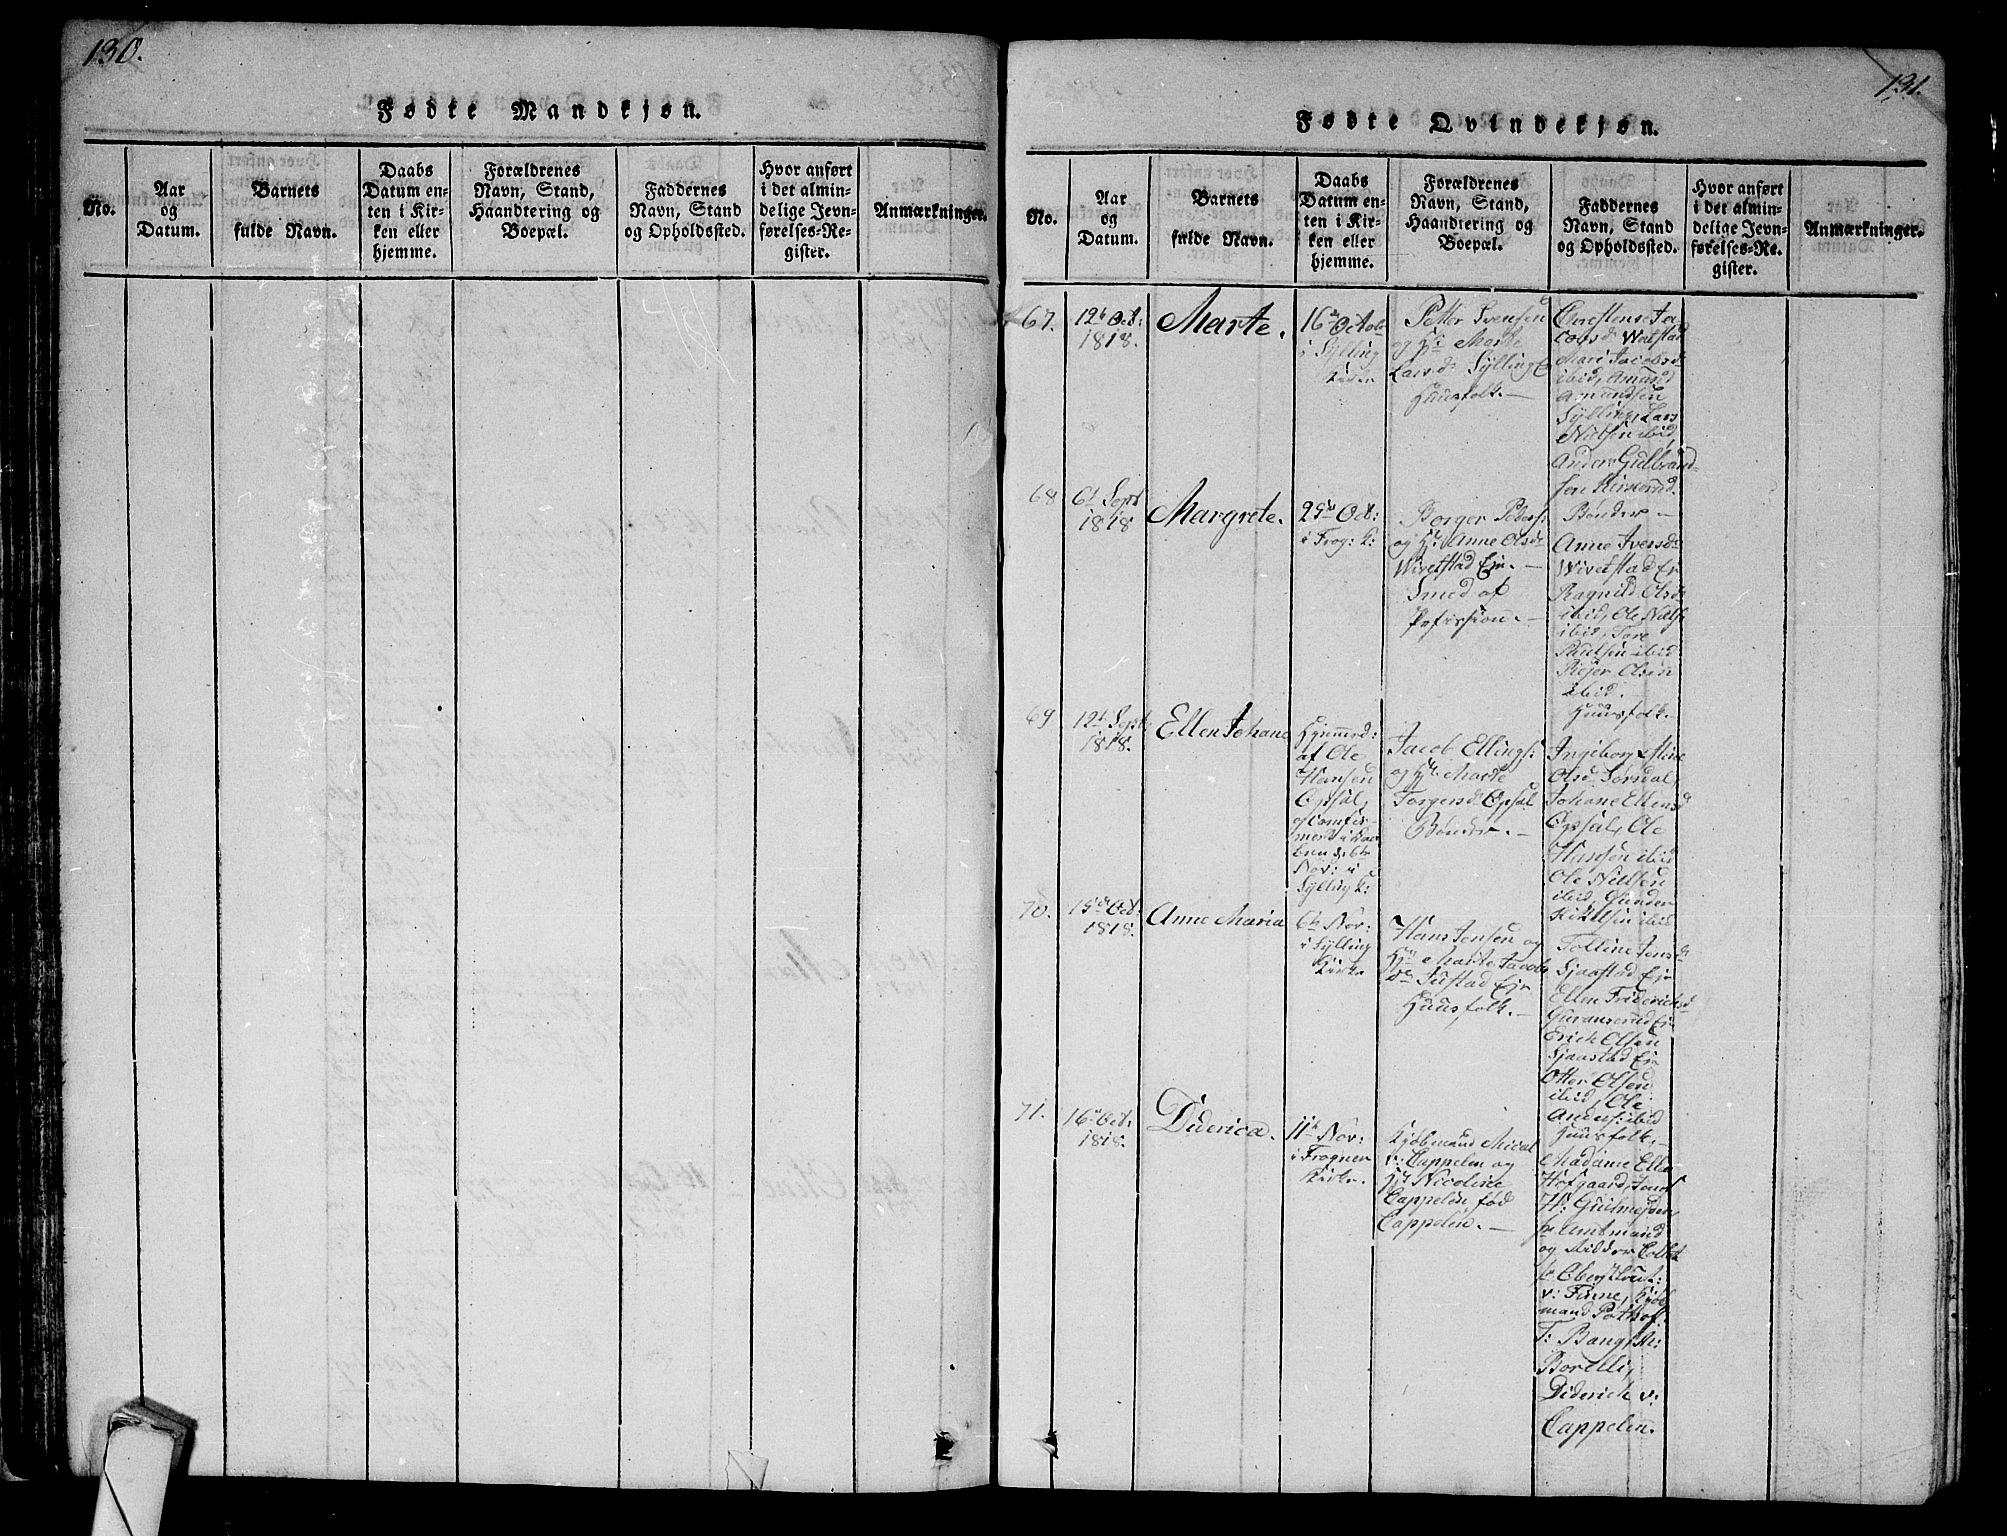 130.
Fødte Mandkjøn.
No.
Aar
og
Datum.
Barnets
fulde Navn.
Daabs
Datum en-
ten i Kir-
ken eller
hjemme.
Forældrenes
Navn, Stand,
Haandtering og
Boepæl.
Faddernes
Navn, Stand
og Opholdssted.
Hvor anført
i det almin-
delige Jevn-
førelses-Re-
gister.
Anmærkninger.
131.
Fødte Qvindekjøn.
No.
Aar
og
Datum.
Barnets
fulde Navn.
Daabs
Datum en-
ten i Kir-
ken eller
hjemme.
Forældrenes
Navn, Stand,
Haandtering og
Boepæl.
Faddernes
Navn, Stand
og Opholdssted.
Hvor anført
i det almin-
delige Jevn-
førelses-Re-
gister.
Anmærkninger.
67.
12te Oct:
1818.
Marte.
16de Octob:
i Sylling
Kirke
Petter Svensen
og H: Marte
Larsd: Sylling E
Huusfolk.
Christense Ja-
cobsd: Wivelstad
Mari Jacobsd:
ibid, Amund
Amundsen
Sylling, Lars
Nielsen ibid,
Anders Gulbrand-
sen
Bønder
68
6te Sept
1818
Margrete.
25de Oct:
i Frog: K:
Borger Peders:
og H: Anne Olsd:
Wivelstad Eje.
Smed af
Profession.
Anne Iversd:
Wivelstad Eje
Ragnild Olsd:
ibid, Ole Niels:
ibid, Tore
Paulsen ibid
Rejer Olsen
ibid.
Huusfolk.
69
12te Sept:
1818.
Ellen Johane
Hjemmed:
af Ole
Hansen
Opsal,
og Confir-
meret i Kir
ken d: 6te
Nov: i
Sylling K:
Jacob Ellings:
og H: Marte
Torgersd: Opsal
Bønder.
Ingeborg Aline
Olsd: Sørsdal,
Johane Ellensd
Opsal, Ole
Hansen ibid
Ole Nielsen
ibid, Gunder
Kittelsen ibid
70.
15de Oct:
1818.
Anne Maria
6te Nov:
i Sylling
Kirke
Hans Jensen og
H: Marte Jacobs
d: Justad Eje
Huusfolk.
Tolline Jensd:
Sjaastad Eje
Ellen Friderichsd
Guranserud Eje
Erich Olsen
Sjaastad Eje
Otter Olsen
ibid, Ole
Anders: ibid
Huusfolk.
71.
16de Oct:
1818.
Diderica.
11te Nov:
i Frogner
Kirke.
Kjøbmand Nicol
v: Cappelen og
H: Nicoline
Cappelen fød
Cappelen.
Madame Ellen
Hofgaard, Jomf
H: Gulmejden,
hr Amtmand
og Ridder Collet
hr Oberstlieut:
v: Fiime, Kjøb-
mand Pothof:
T: Bang, M:
Borelli,
Diderich v:
Cappelen.